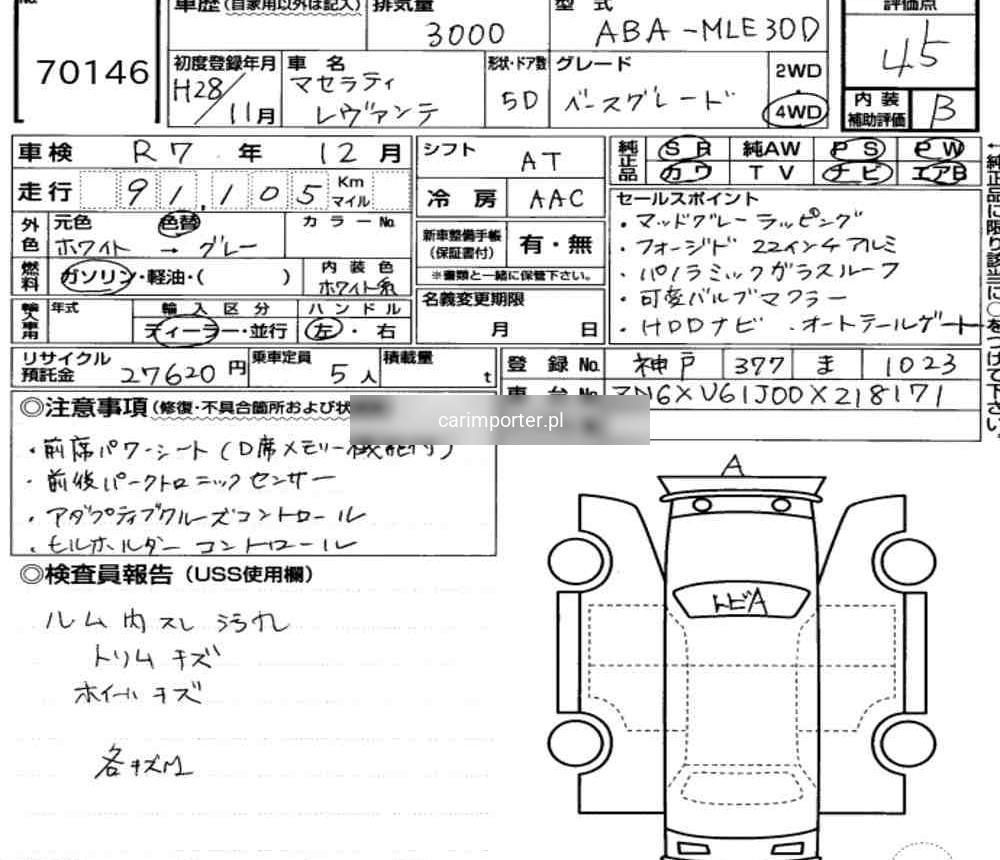 車歴(自家用以外は記入) 排気量 型式 評価点
70146 3000 ABA-MLE30D 4.5
初度登録年月 車名 形状・ドア数 グレード 2WD・4WD 内装補助評価 B
H28/11月 マセラティ レヴァンテ 5D ベースグレード
車検 R7年12月 シフト AT 純正品 SR 純AW PS PW
走行 91,105 Km マイル 冷房 AAC カワ TV ナビ エアB
外色 元色 色替 カラーNo.
ホワイト → グレー
新車整備手帳(保証書付) 有・無
※書類と一緒に保管下さい。
燃料 ガソリン・軽油・( ) 内装色 ホワイト系
輸入車用 年式 輸入区分 ディーラー・並行 ハンドル 左・右
名義変更期限 月 日
セールスポイント
・マッドグレーラッピング
・フォージド 22インチアルミ
・パノラミックガラスルーフ
・可変バルブマフラー
・HDDナビ ・オートテールゲート
←純正品に限り該当に○をつけて下さい。
リサイクル預託金 27620円 乗車定員 5人 積載量 t
登録No. 神戸 377 ま 1023
車台No. ZN6XU61J00X218171
◎注意事項(修復・不具合箇所および状
carimporter.pl
・前席パワーシート(D席メモリー機能付)
・前後パークトロニックセンサー
・アダプティブクルーズコントロール
・ヒルホルダーコントロール
◎検査員報告(USS使用欄)
ルーム内スレ 汚れ
トリムキズ
ホイールキズ
各キズ
A
トビA